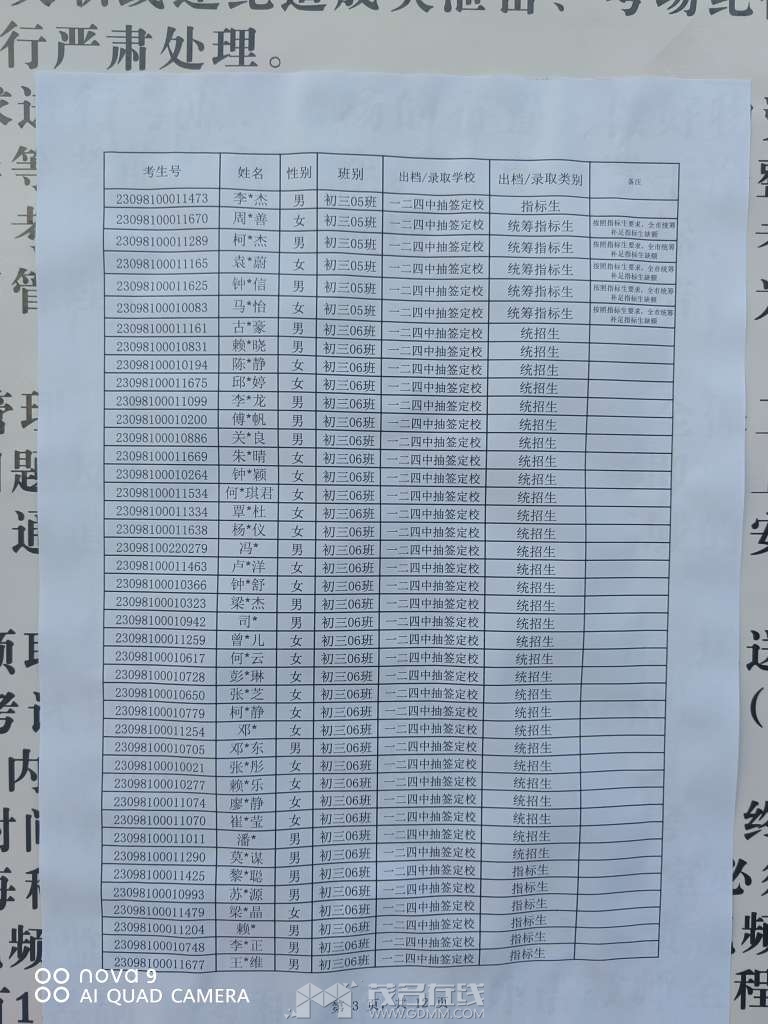 行严肃处理。
考生号 姓名 性别 班别 出档/录取学校 出档/录取类别 备注
23098100011473 李*杰 男 初三05班 一二四中抽签定校 指标生
23098100011670 周*善 女 初三05班 一二四中抽签定校 统筹指标生 按照指标生要求，全市统筹补足指标生缺额
23098100011289 柯*杰 男 初三05班 一二四中抽签定校 统筹指标生 按照指标生要求，全市统筹补足指标生缺额
23098100011165 袁*蔚 女 初三05班 一二四中抽签定校 统筹指标生 按照指标生要求，全市统筹补足指标生缺额
23098100011625 钟*信 男 初三05班 一二四中抽签定校 统筹指标生 按照指标生要求，全市统筹补足指标生缺额
23098100010083 马*怡 女 初三05班 一二四中抽签定校 统筹指标生 按照指标生要求，全市统筹补足指标生缺额
23098100011161 古*豪 男 初三06班 一二四中抽签定校 统招生
23098100010831 赖*晓 男 初三06班 一二四中抽签定校 统招生
23098100010194 陈*静 女 初三06班 一二四中抽签定校 统招生
23098100011675 邱*婷 女 初三06班 一二四中抽签定校 统招生
23098100011099 李*龙 男 初三06班 一二四中抽签定校 统招生
23098100010200 傅*帆 男 初三06班 一二四中抽签定校 统招生
23098100010886 关*良 男 初三06班 一二四中抽签定校 统招生
23098100011669 朱*晴 女 初三06班 一二四中抽签定校 统招生
23098100010264 钟*颖 女 初三06班 一二四中抽签定校 统招生
23098100011534 何*琪君 女 初三06班 一二四中抽签定校 统招生
23098100011334 覃*杜 女 初三06班 一二四中抽签定校 统招生
23098100011638 杨*仪 女 初三06班 一二四中抽签定校 统招生
23098100220279 冯* 男 初三06班 一二四中抽签定校 统招生
23098100011463 卢*洋 女 初三06班 一二四中抽签定校 统招生
23098100010366 钟*舒 女 初三06班 一二四中抽签定校 统招生
23098100010323 梁*杰 男 初三06班 一二四中抽签定校 统招生
23098100010942 司* 男 初三06班 一二四中抽签定校 统招生
23098100011259 曾*儿 女 初三06班 一二四中抽签定校 统招生
23098100010617 何*云 女 初三06班 一二四中抽签定校 统招生
23098100010728 彭*琳 女 初三06班 一二四中抽签定校 统招生
23098100010650 张*芝 女 初三06班 一二四中抽签定校 统招生
23098100010779 柯*静 女 初三06班 一二四中抽签定校 统招生
23098100011254 邓* 女 初三06班 一二四中抽签定校 统招生
23098100010705 邓*东 男 初三06班 一二四中抽签定校 统招生
23098100010021 张*彤 女 初三06班 一二四中抽签定校 统招生
23098100010277 赖*乐 女 初三06班 一二四中抽签定校 统招生
23098100011074 廖*静 女 初三06班 一二四中抽签定校 统招生
23098100011070 崔*莹 女 初三06班 一二四中抽签定校 统招生
23098100011011 潘* 男 初三06班 一二四中抽签定校 统招生
23098100011290 莫*谋 男 初三06班 一二四中抽签定校 统招生
23098100011425 黎*聪 男 初三06班 一二四中抽签定校 指标生
23098100010993 苏*源 男 初三06班 一二四中抽签定校 指标生
23098100011479 梁*晶 女 初三06班 一二四中抽签定校 指标生
23098100011204 赖* 男 初三06班 一二四中抽签定校 指标生
23098100010748 李*正 男 初三06班 一二四中抽签定校 指标生
23098100011677 王*维 男 初三06班 一二四中抽签定校 指标生
第 3 页，共 12 页
nova 9
AI QUAD CAMERA
茂名在线
www.GDMM.com